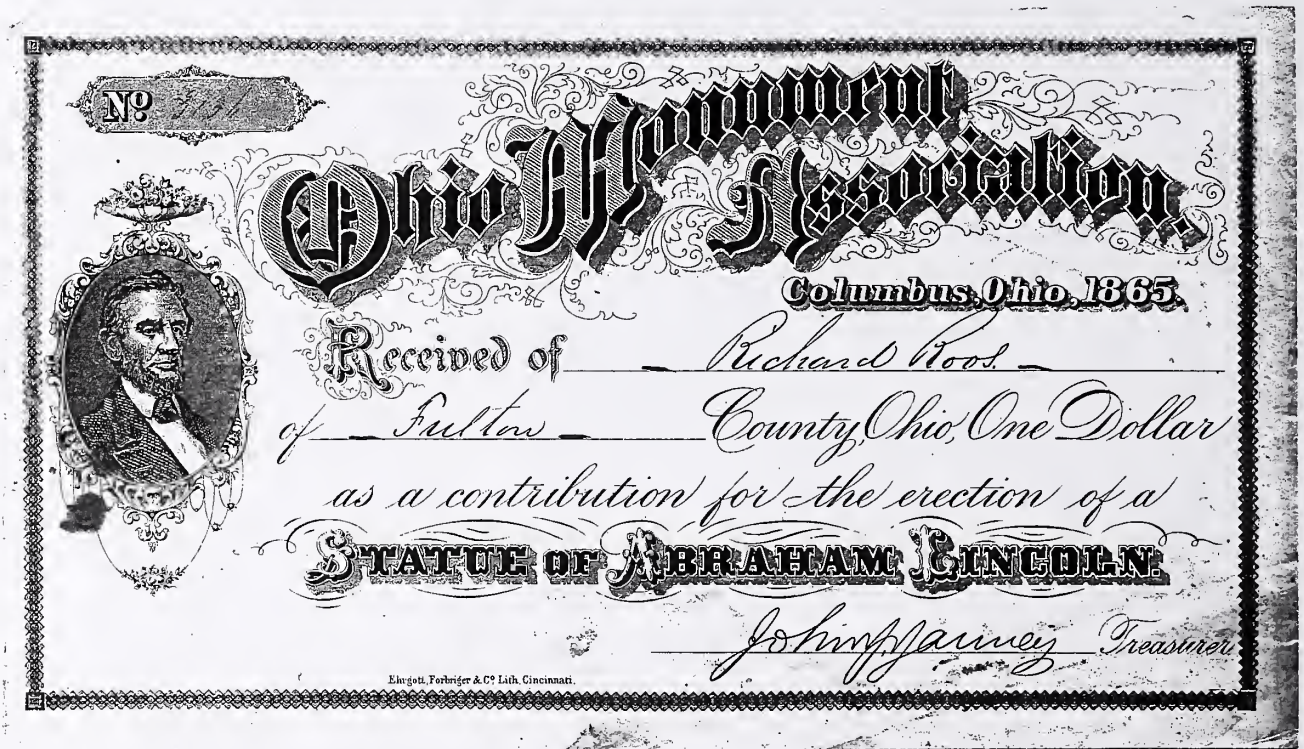 No
Ohio Monument Association.
Columbus, Ohio, 1865.
Received of Richard Roos.
of Fulton County, Ohio, One Dollar
as a contribution for the erection of a
STATUE OF ABRAHAM LINCOLN.
John J. Janney Treasurer
Ehrgott, Forbriger & Co. Lith. Cincinnati.